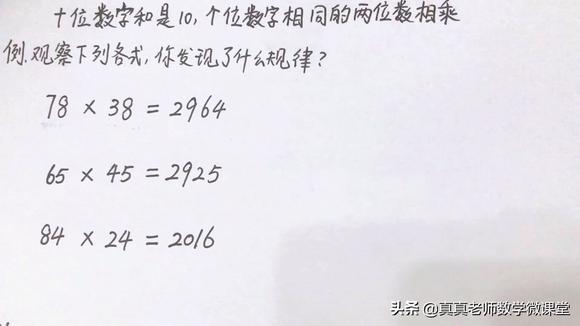 十位数字和是10,个位数字相同的两位数相乘
例.观察下列各式,你发现了什么规律?
78 × 38 = 2964
65 × 45 = 2925
84 × 24 = 2016
头条 @真真老师数学微课堂